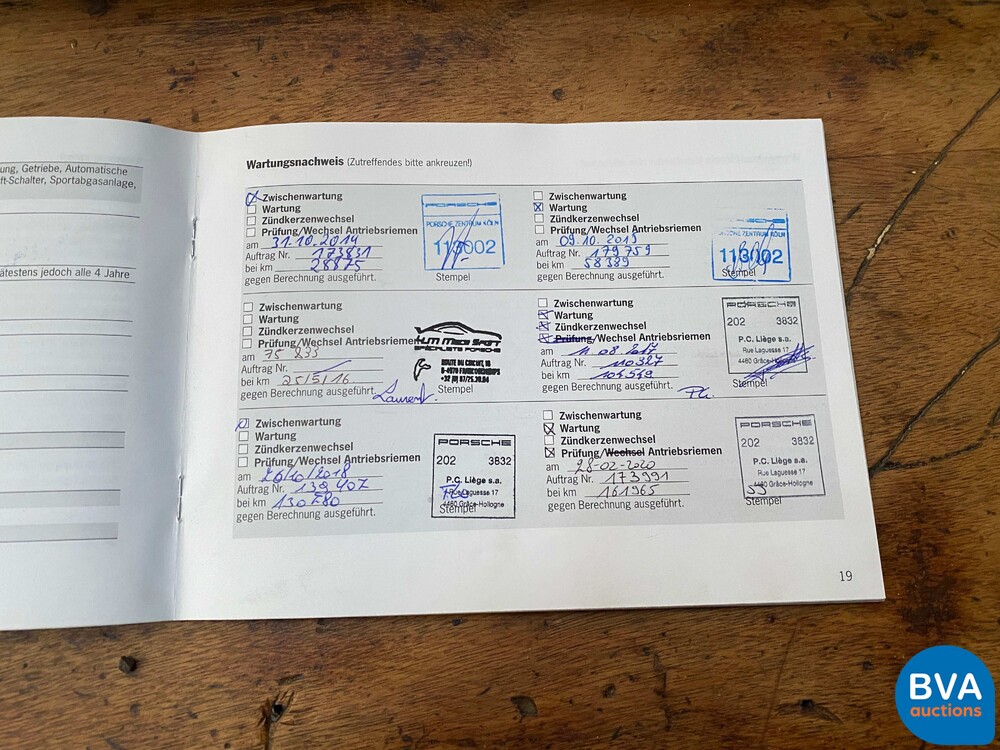 ung, Getriebe, Automatische
ft-Schalter, Sportabgasanlage,
ätestens jedoch alle 4 Jahre
Wartungsnachweis (Zutreffendes bitte ankreuzen!)
Zwischenwartung
Wartung
Zündkerzenwechsel
Prüfung/Wechsel Antriebsriemen
am 31.10.2014
Auftrag Nr. 173831
bei km 28875
gegen Berechnung ausgeführt.
PORSCHE
PORSCHE ZENTRUM KÖLN
113002
Stempel
Zwischenwartung
Wartung
Zündkerzenwechsel
Prüfung/Wechsel Antriebsriemen
am 09.10.2015
Auftrag Nr. 179759
bei km 58389
gegen Berechnung ausgeführt.
PORSCHE ZENTRUM KÖLN
113002
Stempel
Zwischenwartung
Wartung
Zündkerzenwechsel
Prüfung/Wechsel Antriebsriemen
am 75 233
Auftrag Nr.
bei km 25/5/16
gegen Berechnung ausgeführt.
Laurent
SPECIALISTE PORSCHE
ROUTE DU CIRCUIT, 19
B-4970 FRANCORCHAMPS
Stempel
Zwischenwartung
Wartung
Zündkerzenwechsel
Prüfung/Wechsel Antriebsriemen
am 11 08 2017
Auftrag Nr. 110327
bei km 104549
gegen Berechnung ausgeführt.
PORSCHE
202 3832
P.C. Liège s.a.
Rue Laguesse 17
4460 Grâce-Hollogne
Stempel
Zwischenwartung
Wartung
Zündkerzenwechsel
Prüfung/Wechsel Antriebsriemen
am 26/10/2018
Auftrag Nr. 139407
bei km 130680
gegen Berechnung ausgeführt.
PORSCHE
202 3832
P.C. Liège s.a.
Rue Laguesse 17
4460 Grâce-Hollogne
Stempel
Zwischenwartung
Wartung
Zündkerzenwechsel
Prüfung/Wechsel Antriebsriemen
am 28-02-2020
Auftrag Nr. 173991
bei km 161965
gegen Berechnung ausgeführt.
PORSCHE
202 3832
P.C. Liège s.a.
Rue Laguesse 17
4460 Grâce-Hollogne
Stempel
19
BVA
auctions